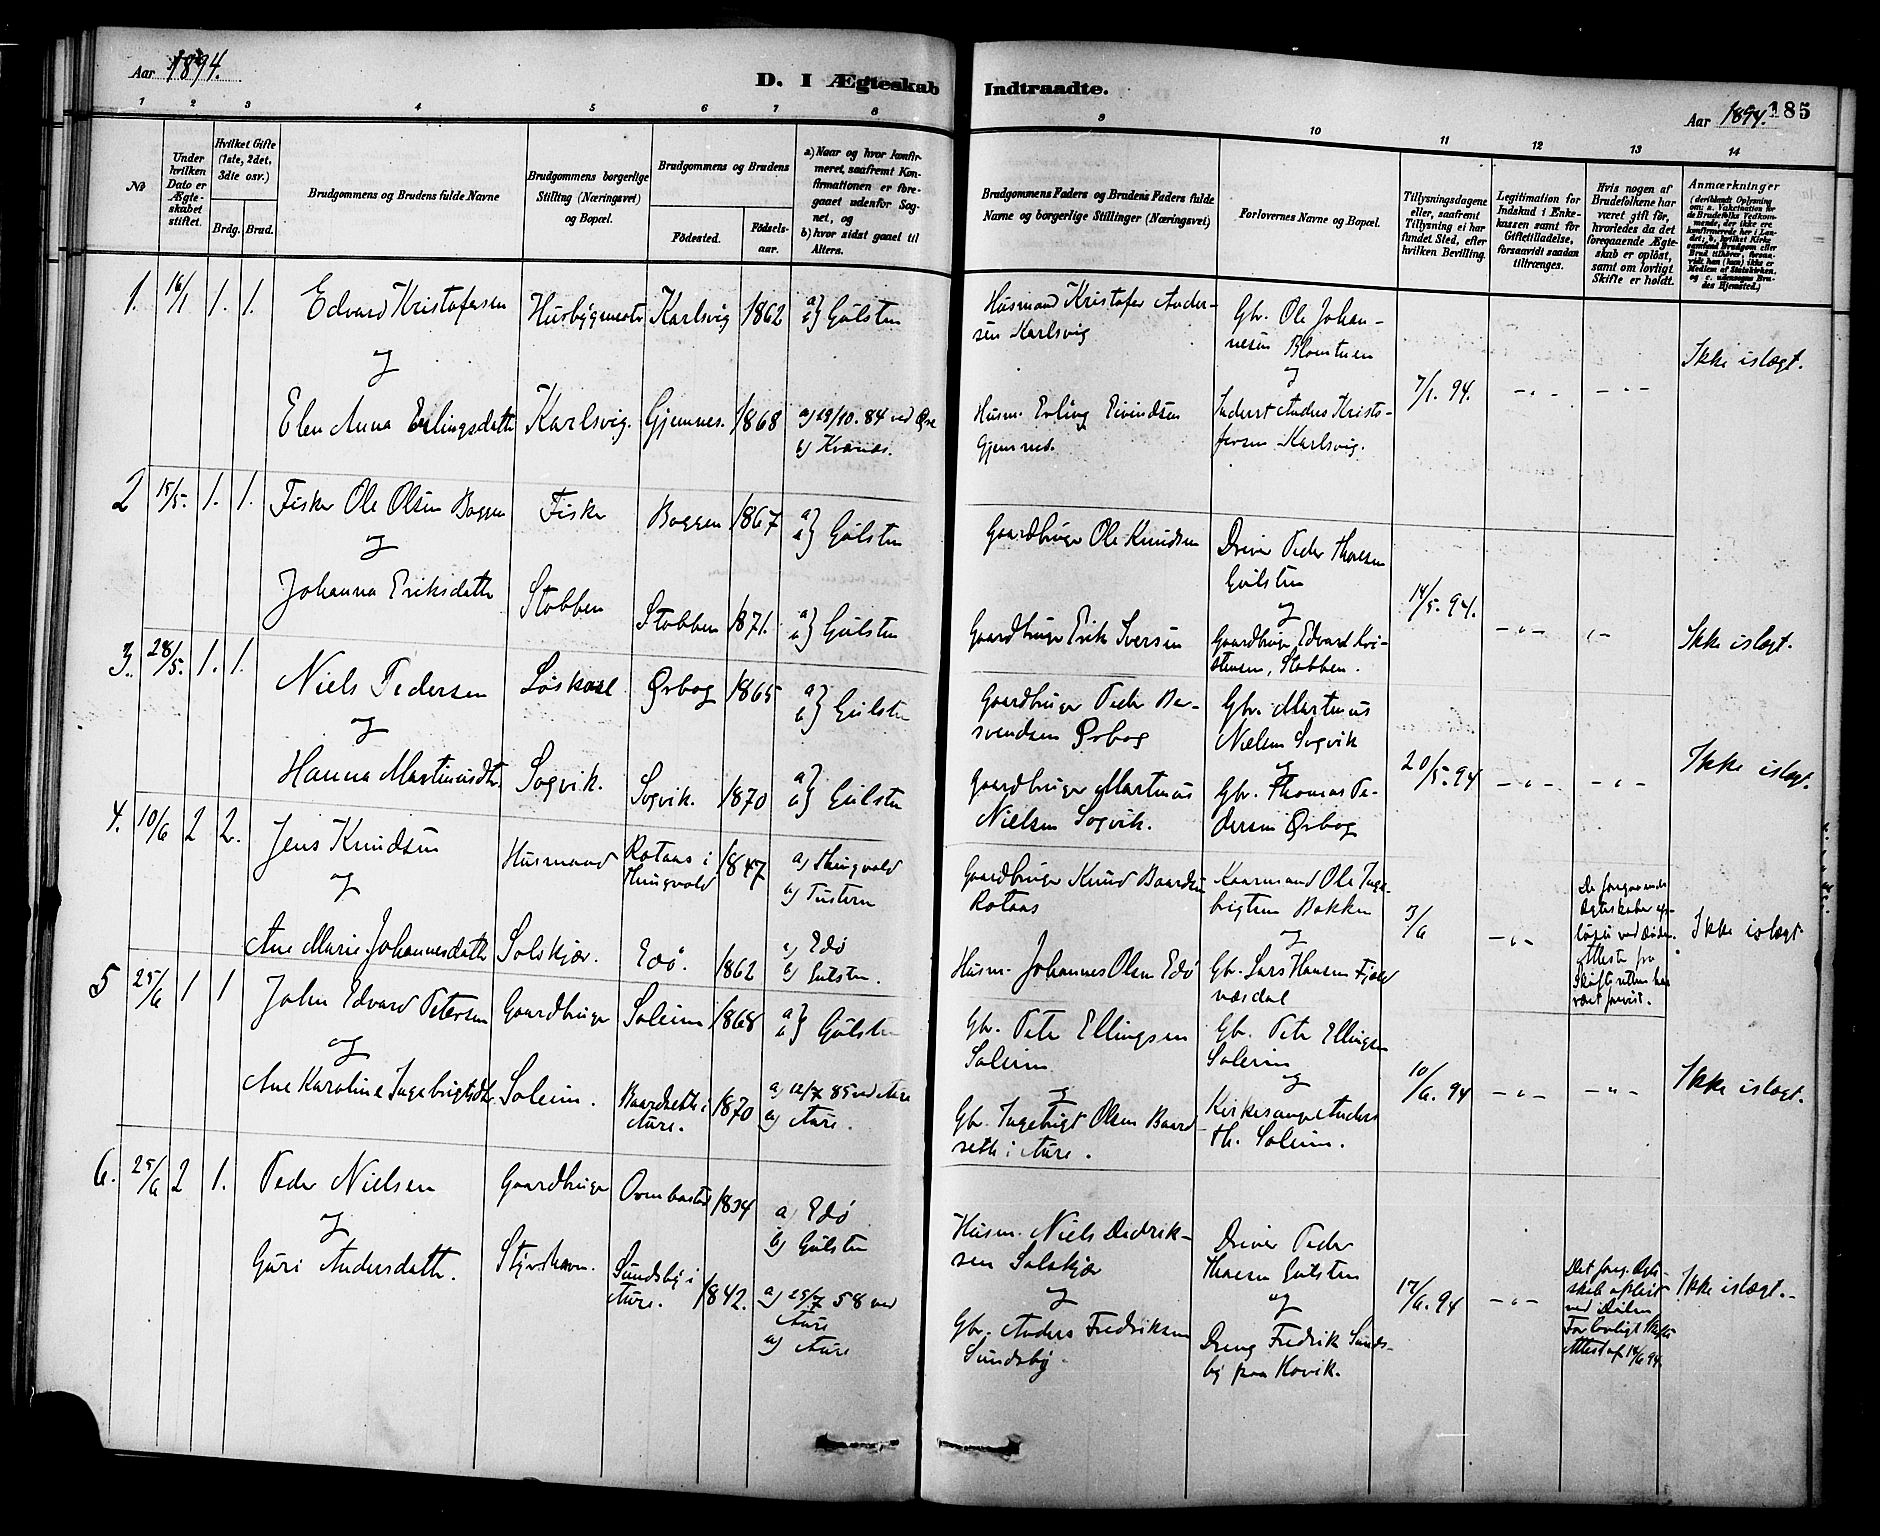 Aar 1894.
D. I Ægteskab Indtraadte.
Aar 1894. 185
1 2 3 4 5 6 7 8
9 10 11 12 13 14
No
Under hvilken Dato er Ægteskabet stiftet.
Hvilket Gifte (1ste, 2det, 3die osv.)
Brdg. Brud.
Brudgommens og Brudens fulde Navne
Brudgommens borgerlige Stilling (Næringsvei) og Bopæl.
Brudgommens og Brudens
Fødested.
Fødselsaar.
a) Naar og hvor konfirmeret, saafremt Konfirmationen er foregaaet udenfor Sognet, og
b) hvor sidst gaaet til Alters.
Brudgommens Faders og Brudens Faders fulde Navne og borgerlige Stillinger (Næringsvei)
Forlovernes Navne og Bopæl.
Tillysningsdagene eller, saafremt Tillysning ei har fundet Sted, efter hvilken Bevilling.
Legitimation for Indskud i Enkekassen samt for Giftetilladelse, forsaavidt saadan tiltrænges.
Hvis nogen af Brudefolkene har været gift før, hvorledes da det foregaaende Ægteskab er opløst, samt om lovligt Skifte er holdt.
Anmærkninger
1. 16/1 1. 1. Edvard Kristofersen
og
Elen Anna Erlingsdatte
Karlsvig.
Karlsvig 1862
Gjemnes. 1868
a) b) Gulsten
a) 19/10. 84 ved Øre
b) Kværnæs.
Husmand Kristofer Andersen Karlsvig
Husm. Erling Eivindsen
Gbr. Ole Johannesen
og
Anders Kristofersen Karlsvig.
7/1. 94.
Ikke islægt.
2 15/5. 1. 1. Fisker Ole Olsen Boggen
og
Johanna Eriksdatte
Fisker
Stobben
Boggen 1867
Stobben 1871.
a) b) Gulsten
a) b) Gulsten
Gaardbruger Ole Knudsen
Gaardbruger Erik Iversen
Driver Peder Thoresen Gulsten
og
Gaardbruger Edvard Kristensen, Stobben.
14/5. 94.
Ikke islægt.
3. 28/5. 1. 1. Niels Pedersen
og
Hanna Martinusdtr.
Løskarl
Sogvik.
Ørbog 1865
Sogvik. 1870
a) b) Gulsten
a) b) Gulsten
Gaardbruger Peder Bersvendsen Ørbog
Gaardbruger Martinus Nielsen Sogvik.
Gbr. Martinus Nielsen Sogvik
og
Gbr. Thomas Pedersen Ørbog
20/5. 94
Ikke islægt.
4. 10/6 2 2. Jens Knudsen
og
Ane Marie Johannesdatte
Husmand
Solskjær.
Rotaas i Thingvold 1847
Edø. 1862
a) Thingvold
b) Tustern
a) Edø
b) Gulsten.
Gaardbruger Knud Baardsen Rotaas
Husm. Johannes Olsen Edø
Kaarmand Ole Ingebrigtsen Bakken
og
Gbr. Lars Hansen Fjordnæsdal
3/6
De foregaaende Ægteskaber opløste ved Døden. Attest fra Skifteretten har vært forvist.
Ikke islægt
5 25/6 1 1 John Edvard Petersen
og
Ane Karoline Ingebrigtsdtr.
Gaardbruger
Soleim.
Soleim 1868
Baardseth i Aure. 1870
a) b) Gulsten
a) 12/7 85 ved Aure
b) Aure.
Gbr. Peter Ellingsen Soleim
og
Gbr. Ingebrigt Olsen Baardseth i Aure.
Gbr. Peter Ellingsen Soleim
og
Kirkesanger Anders Th. Soleim.
10/6. 94
Ikke islægt.
6. 25/6 2 1. Peder Nielsen
og
Guri Andersdatte.
Gaardbruger
Styrshavn.
1834
Sundsby i Aure. 1842.
a) Edø
b) Gulsten
a) 25/7 58 ved Aure
b) Aure
Husm. Niels Didriksen Solskjær
og
Gbr. Anders Fredriksen Sundsby.
Driver Peder Thoresen Gulsten
og
Dreng Fredrik Sundsby paa Hovik.
17/6. 94
Det foreg. Ægteskab opløst ved Døden For lovligt Skifte Attest af 14/6 94.
Ikke islægt.